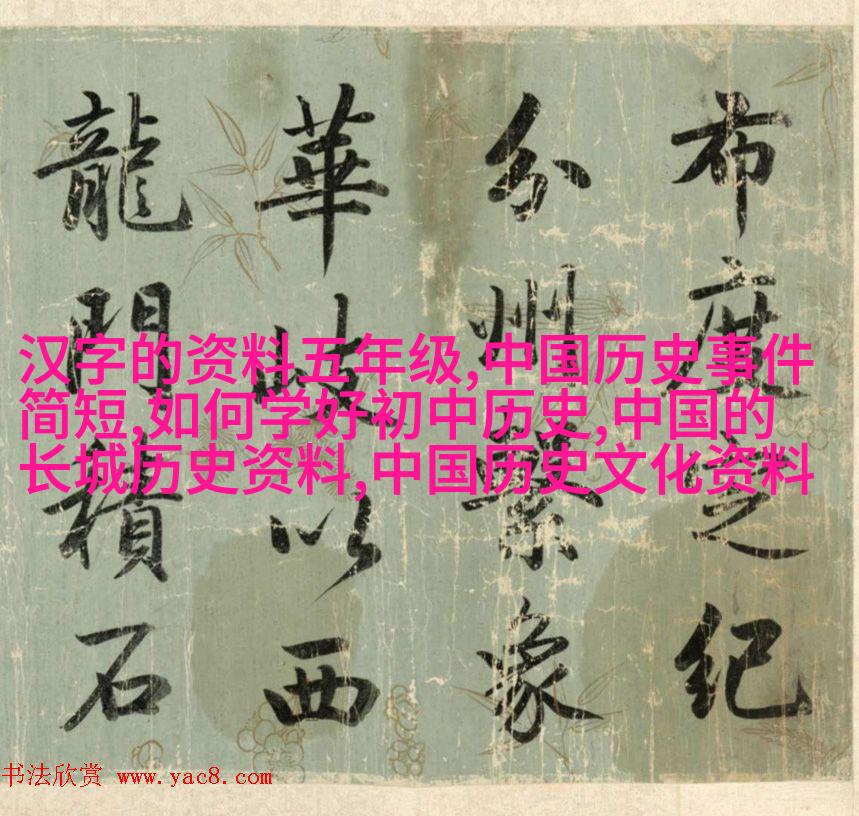 布度定紀
分州繫象
華岐以西
龍門積石
汉字的资料五年级,中国历史事件
简短,如何学好初中历史,中国的
长城历史资料,中国历史文化资料
书法欣赏 www.yac8.com